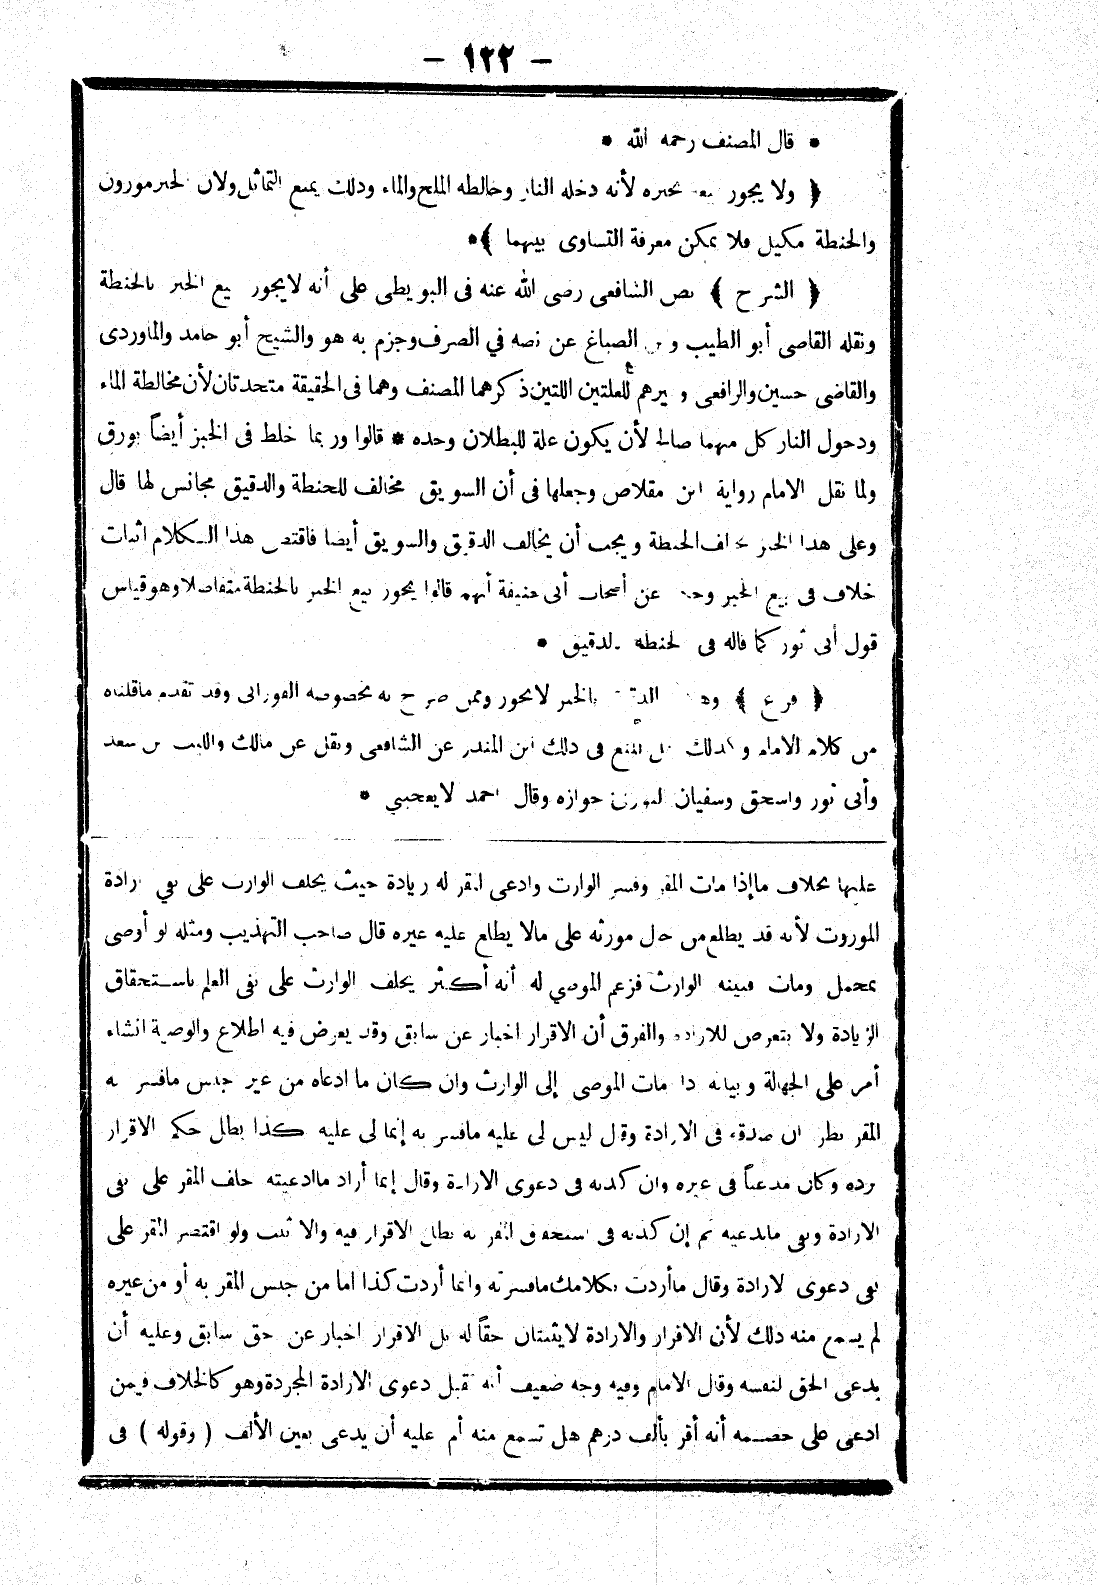 - ١٢٢ -
* قال المصنف رحمه الله *
﴿ ولا يجوز بيعه بخبزه لأنه دخله النار وخالطه الملح والماء وذلك يمنع التماثل ولان الخبز موزون
والحنطة مكيل فلا يمكن معرفة التساوى بينهما ﴾*
﴿ الشرح ﴾ نص الشافعى رضى الله عنه فى البويطى على أنه لايجوز بيع الخبز بالحنطة
ونقله القاضى أبو الطيب وابن الصباغ عن نصه في الصرف وجزم به هو والشيخ أبو حامد والماوردى
والقاضى حسين والرافعى وغيرهم للعلتين اللتين ذكرهما المصنف وهما فى الحقيقة متحدتان لأن مخالطة الماء
ودخول النار كل منهما صالح لأن يكون علة للبطلان وحده * قالوا وربما خلط فى الخبز أيضاً بورق
ولما نقل الامام رواية ابن مقلاص وجعلها فى أن السويق مخالف للحنطة والدقيق مجانس لها قال
وعلى هذا الخبز يخالف الحنطة ويجب أن يخالف الدقيق والسويق أيضا فاقتضى هذا الكلام اثبات
خلاف فى بيع الخبز وحكى عن أصحاب أبى حنيفة أنهم قالوا يجوز بيع الخبز بالحنطة متفاضلا وهو قياس
قول أبى ثور كما قاله فى الحنطة بالدقيق *
﴿ فرع ﴾ الدقيق بالخبز لايجوز وممن صرح به بخصوصه الفورانى وقد تقدم ماقلناه
من كلام الامام وكذلك نقل المنع فى ذلك ابن المنذر عن الشافعى ونقل عن مالك والليث بن سعد
وأبى ثور واسحق وسفيان الثورى جوازه وقال احمد لايعجبنى *
عليها بخلاف ماإذا مات المقر وفسر الوارث وادعى المقر له زيادة حيث يحلف الوارث على نفى ارادة
الموروث لأنه قد يطلع من حال مورثه على مالا يطلع عليه غيره قال صاحب التهذيب ومثله لو أوصى
بمجمل ومات فبينه الوارث فزعم الموصى له أنه أكثر يحلف الوارث على نفى العلم باستحقاق
الزيادة ولا يتعرض للارادة والفرق أن الاقرار اخبار عن سابق وقد يعرض فيه اطلاع والوصية انشاء
أمر على الجهالة وبيانه اذا مات الموصى إلى الوارث وان كان ما ادعاه من غير جنس مافسر به
المقر نظر ان صدقه فى الارادة وقال ليس لى عليه مافسر به إنما لى عليه كذا بطل حكم الاقرار
برده وكان مدعياً فى غيره وان كذبه فى دعوى الارادة وقال إنما أراد ماادعيته حلف المقر على نفى
الارادة ونفى مايدعيه ثم إن كذبه فى استحقاق المقر به بطل الاقرار فيه والا ثبت ولو اقتصر المقر على
نفى دعوى الارادة وقال ماأردت بكلامك مافسرته وانما أردت كذا اما من جنس المقر به أو من غيره
لم يسمع منه ذلك لأن الاقرار والارادة لايثبتان حقاً له بل الاقرار اخبار عن حق سابق وعليه أن
يدعى الحق لنفسه وقال الامام وفيه وجه ضعيف أنه تقبل دعوى الارادة المجردة وهو كالخلاف فيمن
ادعى على خصمه أنه أقر بألف درهم هل تسمع منه أم عليه أن يدعى بعين الألف ( وقوله ) فى